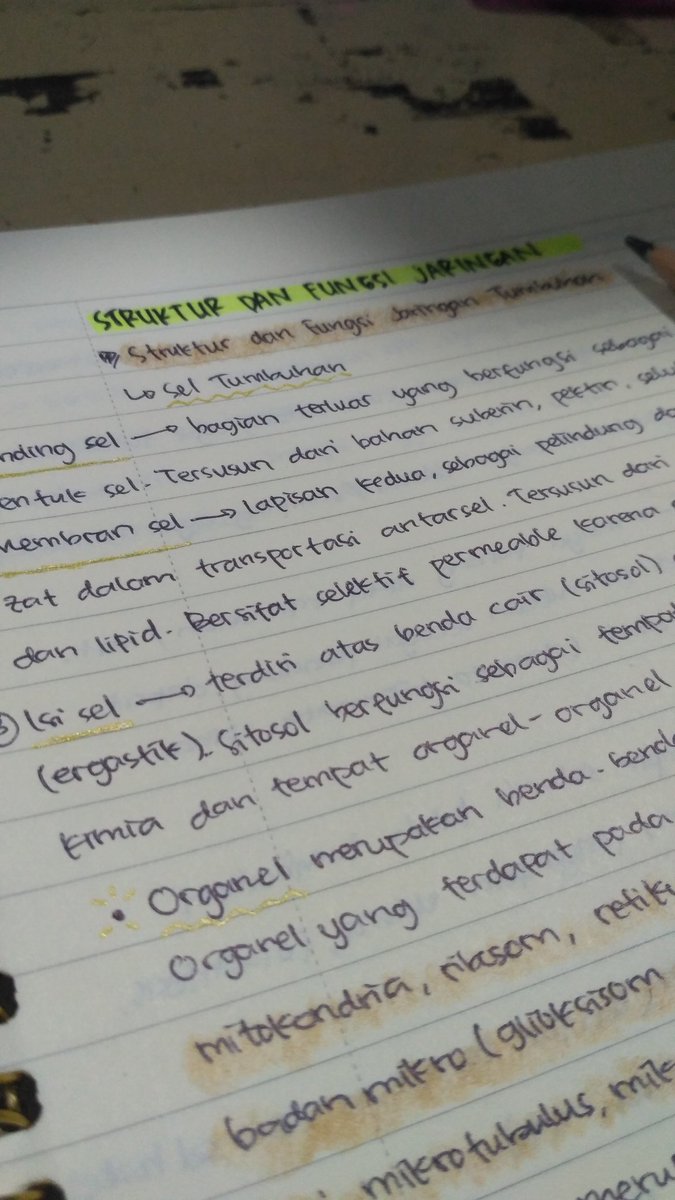 STRUKTUR DAN FUNGSI JARINGAN
Struktur dan Fungsi Jaringan Tumbuhan
↳ Sel Tumbuhan
nding sel → bagian terluar yang berfungsi sebagai
entuk sel. Tersusun dari bahan suberin, pektin, selu
membran sel → lapisan kedua, sebagai pelindung da
zat dalam transportasi antarsel. Tersusun dari
dan lipid. Bersifat selektif permeable karena
③ Isi sel → terdiri atas benda cair (sitosol)
(ergastik). Sitosol berfungsi sebagai tempat
kimia dan tempat organel-organel
• Organel merupakan benda-benda
Organel yang terdapat pada
mitokondria, ribosom, retik
badan mikro (glioksisom
mikrotubulus, mik
meru